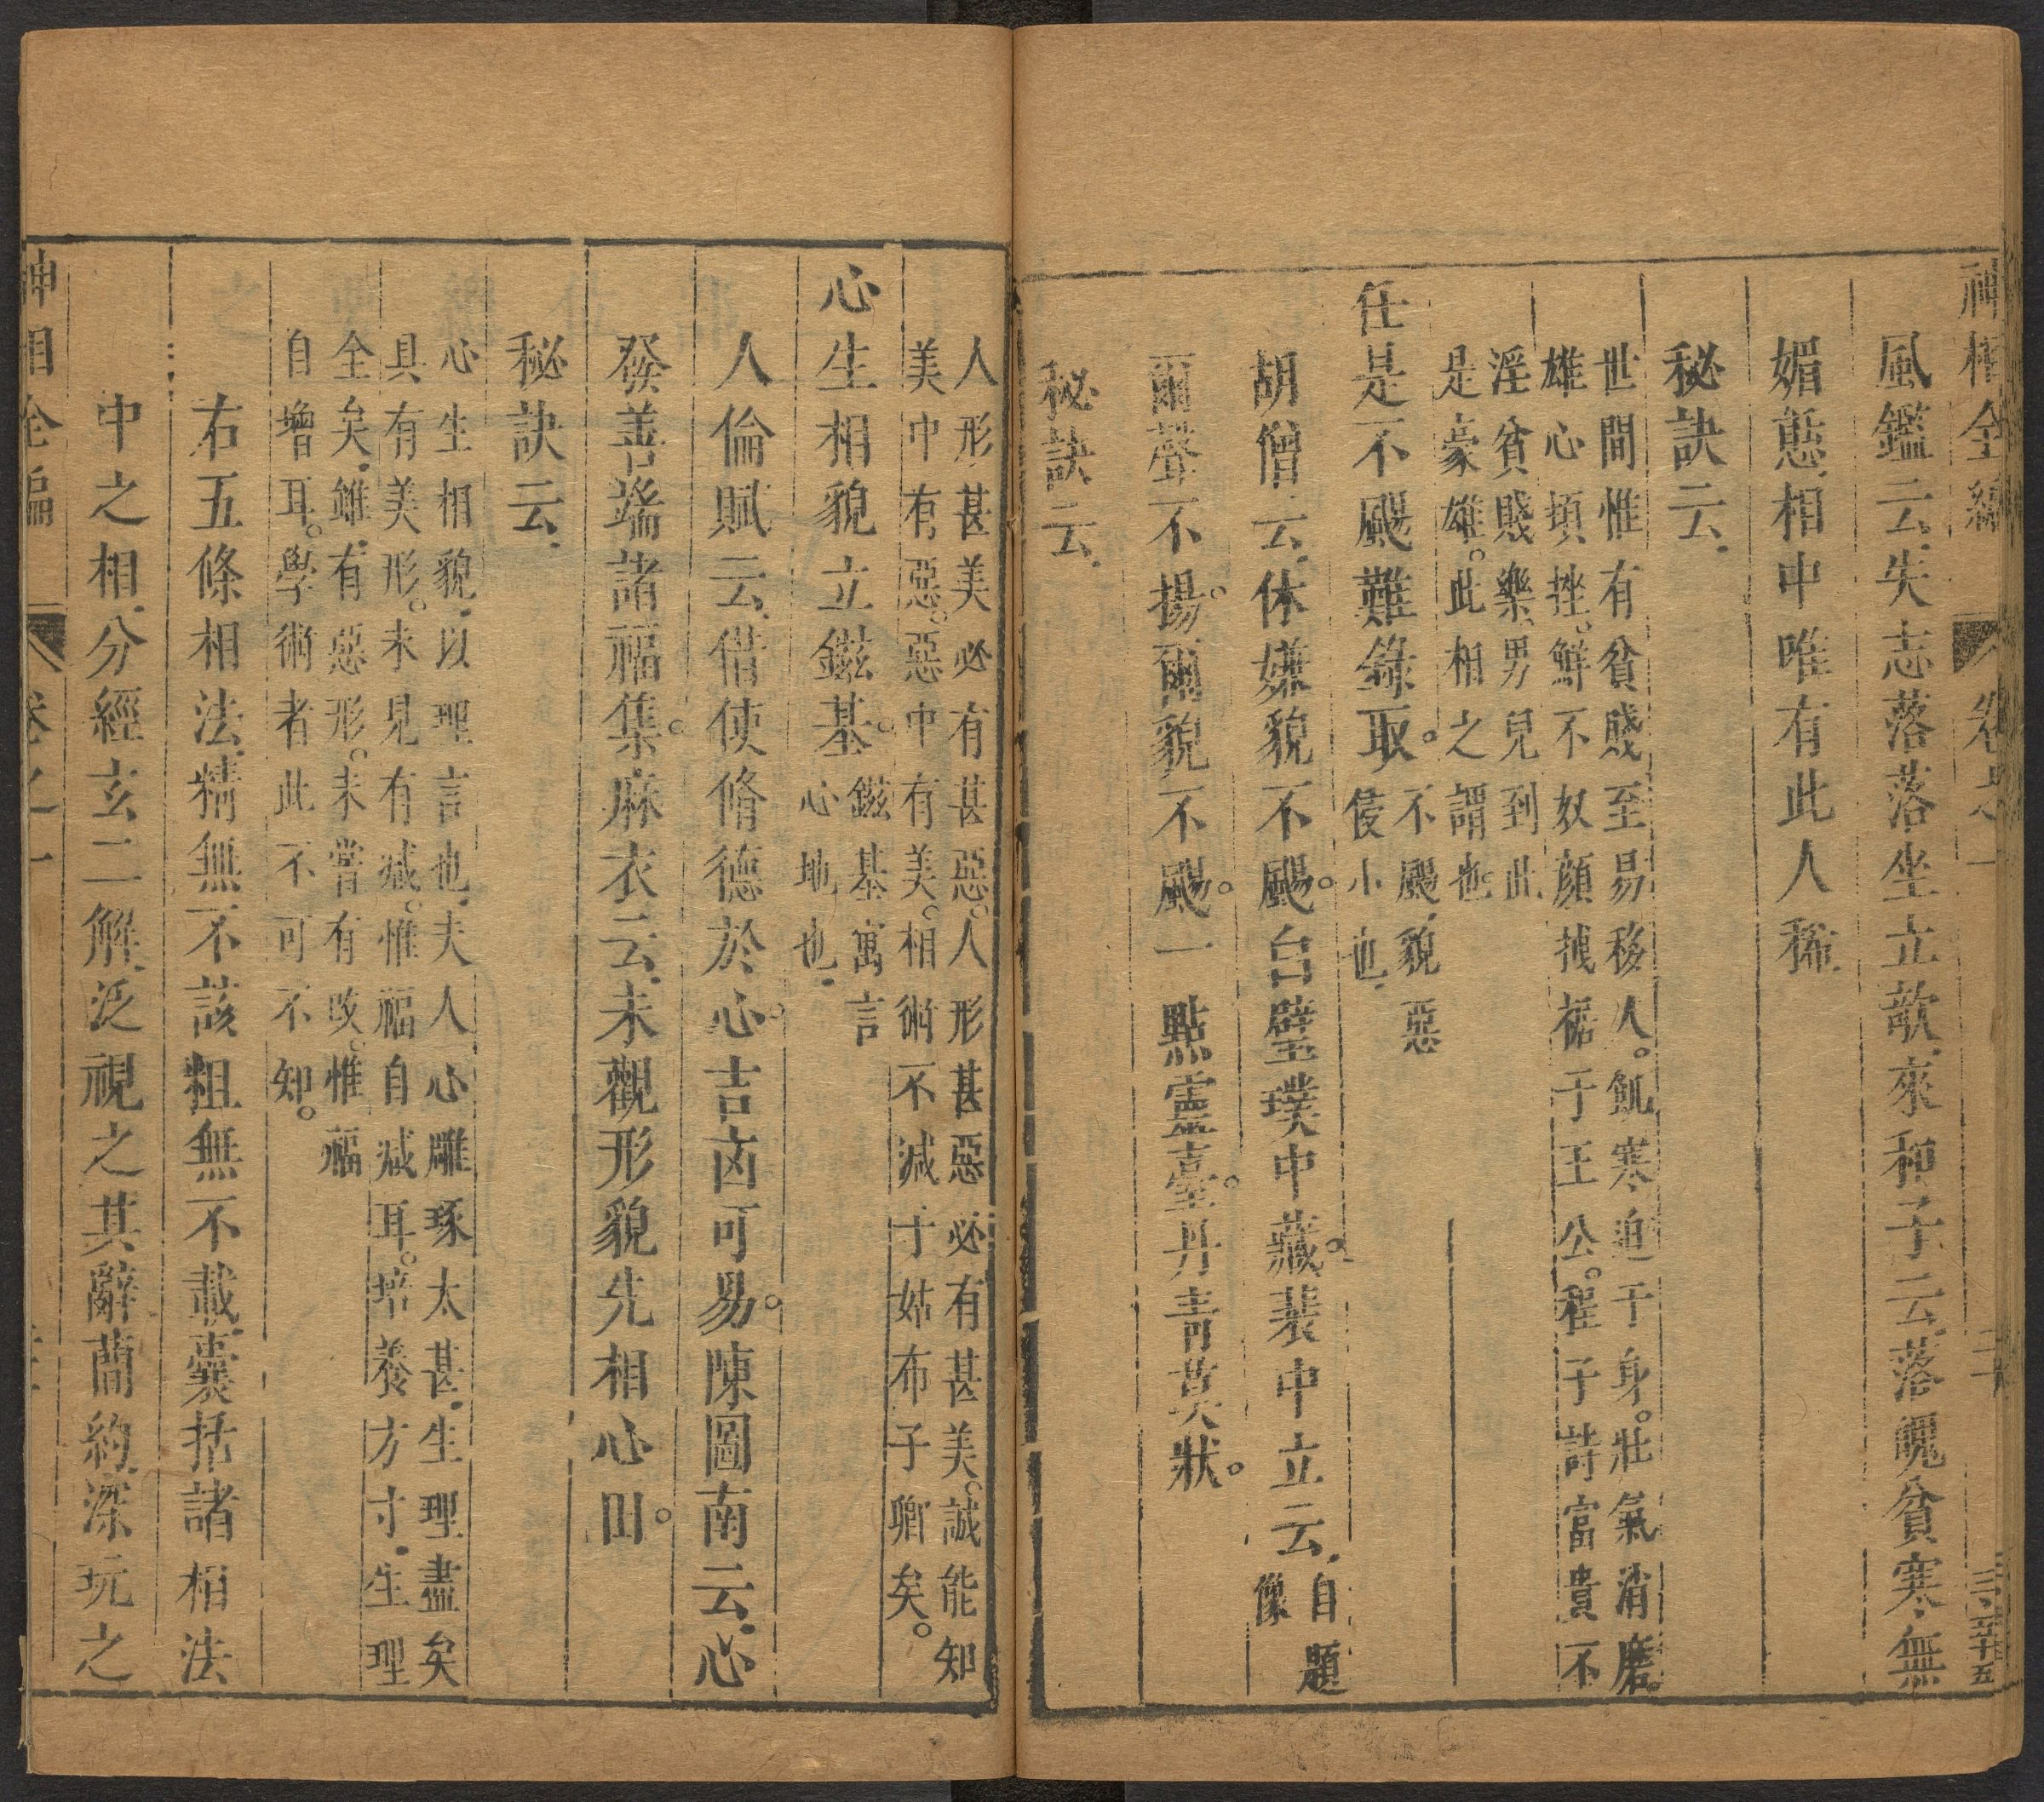 神相全編 卷之一
風鑑云、失志落落坐立欹、來和子云、落魄貧寒、無
媚態、相中唯有此人稀、
秘訣云、
世間惟有貧賤至易移人。飢寒迫于身。壯氣消磨。
雄心頓挫。鮮不奴顏拽裾于王公。程子詩富貴不
淫貧賤樂、男兒到此
是豪雄。此相之謂也。
任是不颺難錄取。不颺、貌惡
侵小也、
胡僧云、休嫌貌不颺。白璧璞中藏。裴中立云、自題
像
爾聲不揚。爾貌不颺。一點靈臺。丹青莫狀。
秘訣云、
人形甚美必有甚惡。人形甚惡必有甚美。誠能知
美中有惡。惡中有美。相術不減于姑布子卿矣。
心生相貌立鎡基。鎡基寓言
心地也、
人倫賦云、借使脩德於心。吉凶可易。陳圖南云、心
發善端諸福集。麻衣云、未觀形貌先相心田。
秘訣云、
心生相貌、以理言也、夫人心雕琢太甚、生理盡矣
具有美形。未見有減。惟福自減耳。培養方寸、生理
全矣、雖有惡形。未嘗有改。惟福
自增耳。學術者此不可不知。
右五條相法、精無不該粗無不載、囊括諸相法
中之相、分經玄二解、泛視之其辭蕳約、深玩之
神相全編 卷之一